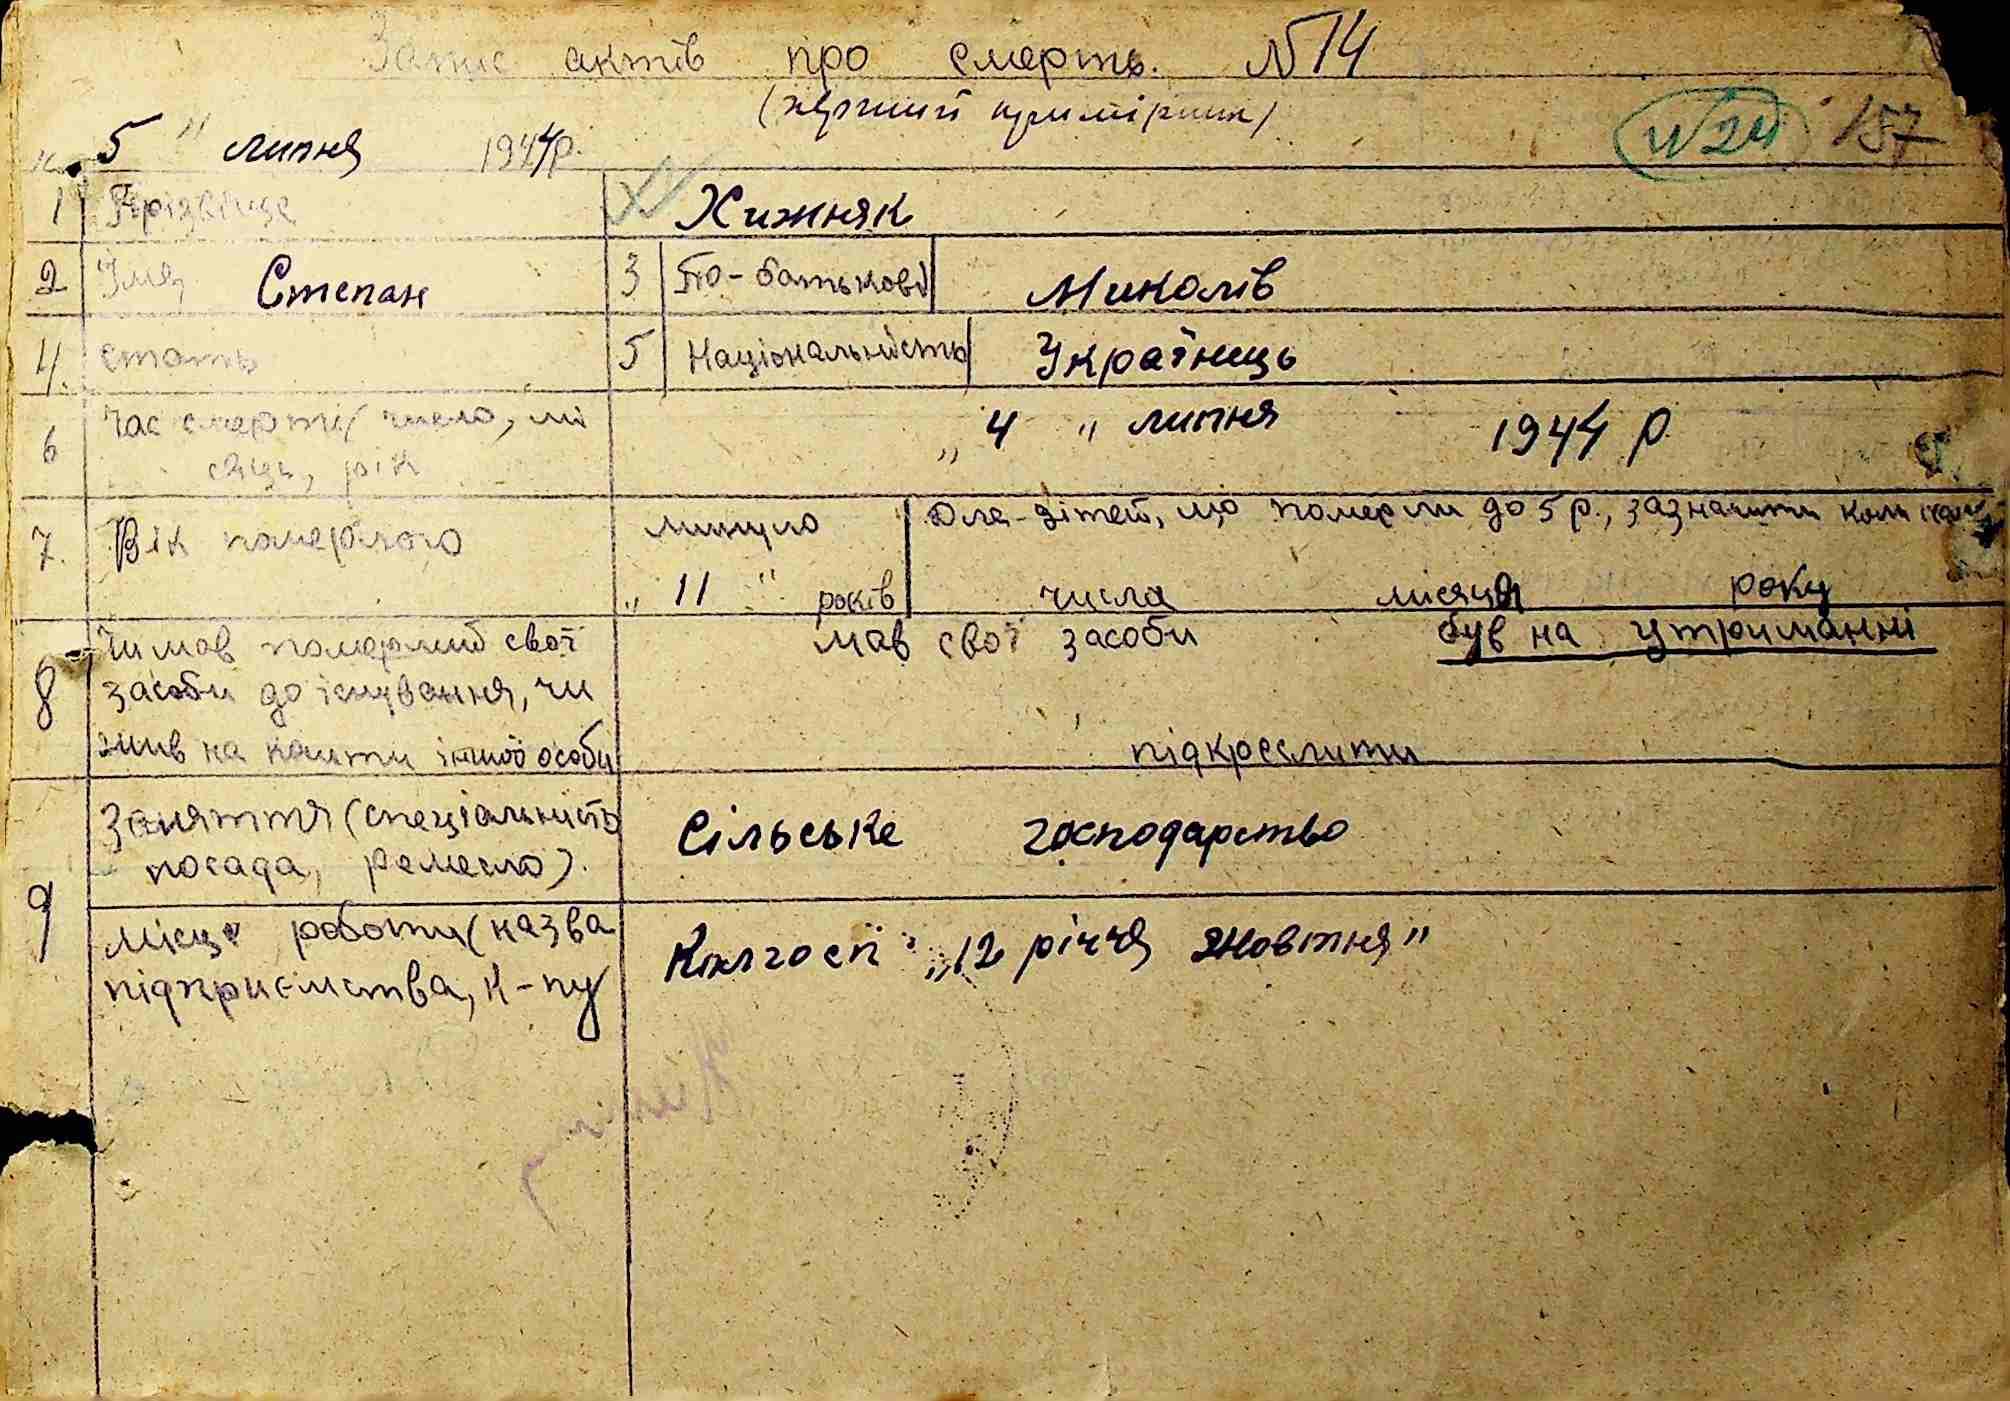 Запис актів про смерть. №14
(перший примірник)
№24 157
5 " липня 1944р.
1 Прізвіще Хижняк
2 Імя Степан 3 По-батькові Миколів
4. стать 5 Національність Українець
6 Час смерти (число, мі „ 4 „ липня 1944 р.
сяць, рік
7. Вік померлого минуло Для дітей, що померли до 5 р., зазначити коли
„ 11 " років числа місяця року
8 Чи мав померлий свої мав свої засоби був на утриманні
засоби до існування, чи
жив на кошти іншої особи підкреслити
9 Заняття (спеціальність Сільське господарство
посада, ремесло).
місце роботи (назва Колгосп „12 річчя жовтня"
підприємства, к-пу